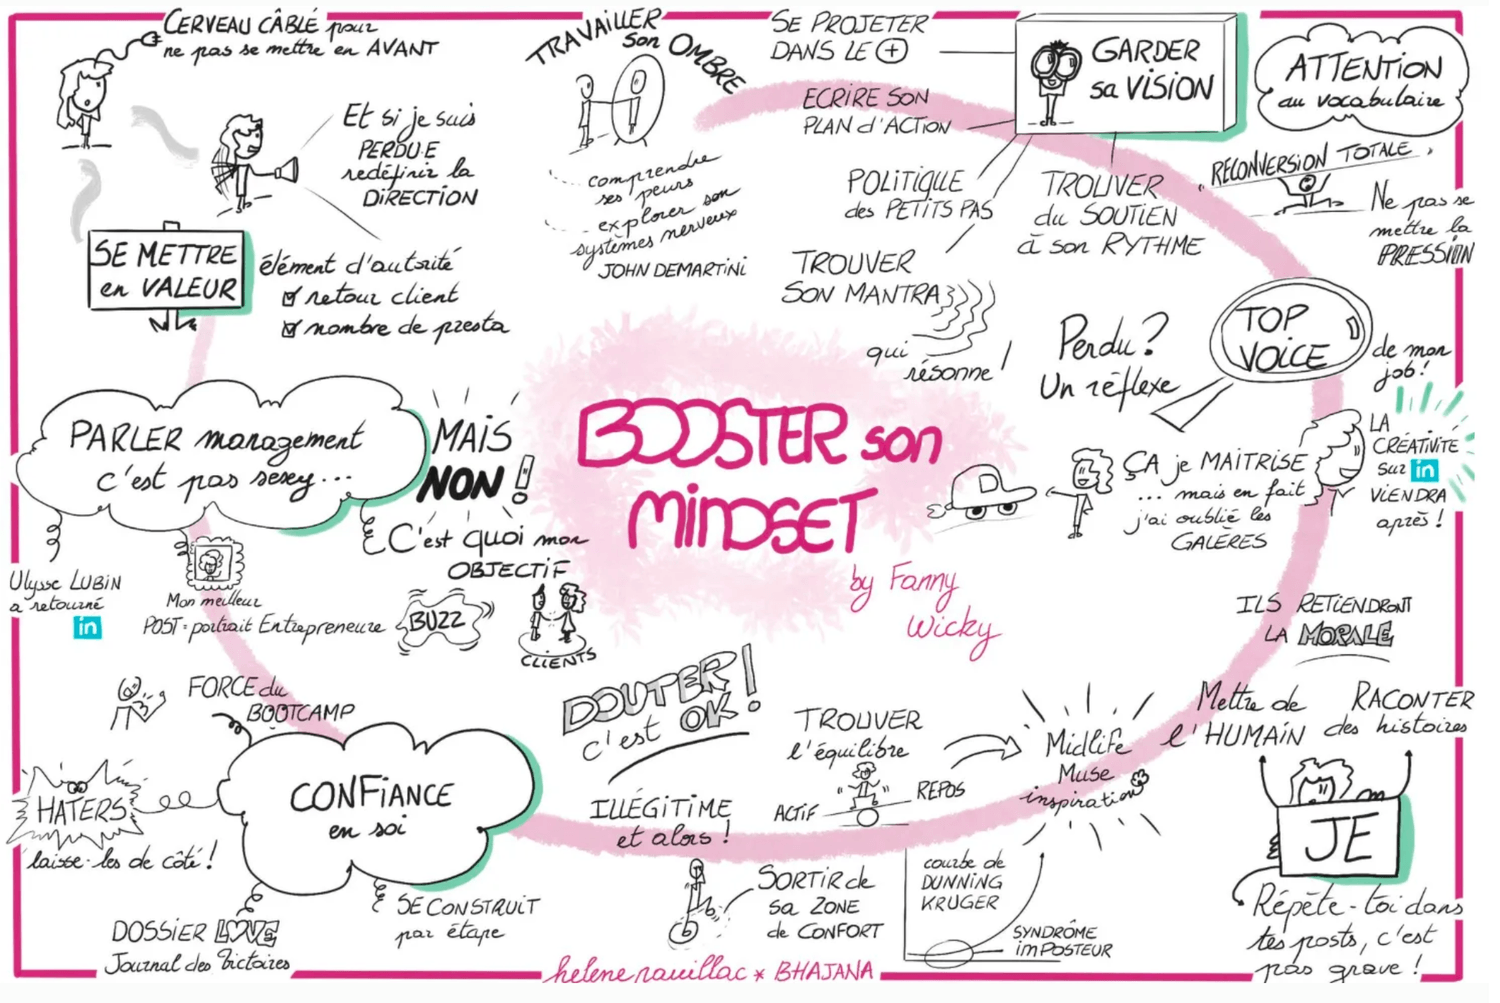 CERVEAU CÂBLÉ pour
ne pas se mettre en AVANT
Et si je suis
PERDU·E
redéfinir la
DIRECTION
SE METTRE
en VALEUR
élément d'autorité
retour client
nombre de presta
TRAVAILLER
son OMBRE
comprendre
ses peurs
explorer son
systèmes nerveux
JOHN DEMARTINI
SE PROJETER
DANS LE +
ECRIRE SON
PLAN d'ACTION
POLITIQUE
des PETITS PAS
TROUVER
SON MANTRA
qui
résonne !
GARDER
sa VISION
TROUVER
du SOUTIEN
à son RYTHME
ATTENTION
au vocabulaire
RECONVERSION TOTALE
Ne pas se
mettre la
PRESSION
TOP
VOICE
de mon
job !
Perdu ?
Un réflexe
LA
CRÉATIVITÉ
sur in
VIENDRA
après !
ÇA je MAITRISE
... mais en fait
j'ai oublié les
GALÈRES
BOOSTER son
MINDSET
by Fanny
Wicky
PARLER management
c'est pas sexey...
MAIS
NON !
C'est quoi mon
OBJECTIF
BUZZ
CLIENTS
Ulysse LUBIN
a retourné
in
Mon meilleur
POST = portrait Entrepreneure
FORCE du
BOOTCAMP
CONFIANCE
en soi
HATERS
laisse-les de côté !
DOSSIER LOVE
Journal des Victoires
SE CONSTRUIT
par étape
DOUTER !
c'est OK !
ILLÉGITIME
et alors !
SORTIR de
sa ZONE
de CONFORT
TROUVER
l'équilibre
ACTIF
REPOS
Midlife
Muse
inspiration
courbe de
DUNNING
KRUGER
SYNDRÔME
imPOSTEUR
ILS RETIENDRONT
LA MORALE
Mettre de
l'HUMAIN
RACONTER
des histoires
JE
Répète-toi dans
tes posts, c'est
pas grave !
helene rauillac * BHAJANA